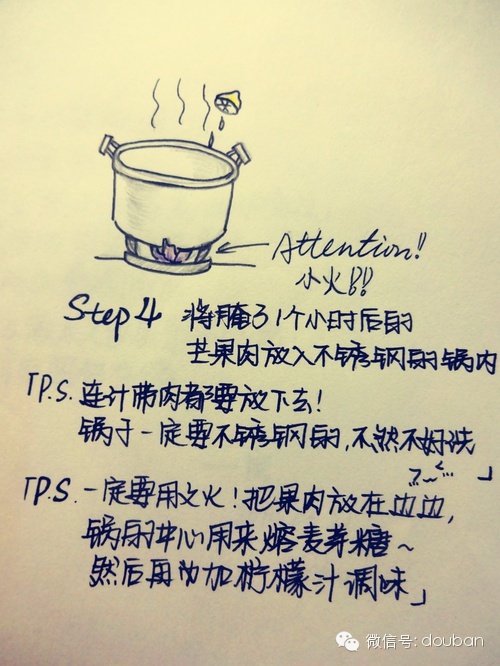 Attention!!
小火!!
Step 4 将腌了1个小时后的
芒果肉放入不锈钢的锅内
「P.S. 连汁带肉都要放下去!
锅子一定要不锈钢的,不然不好洗
」
「P.S. 一定要用文火!把果肉放在四周,
锅的中心用来熔麦芽糖~
然后再加柠檬汁调味」
微信号: douban